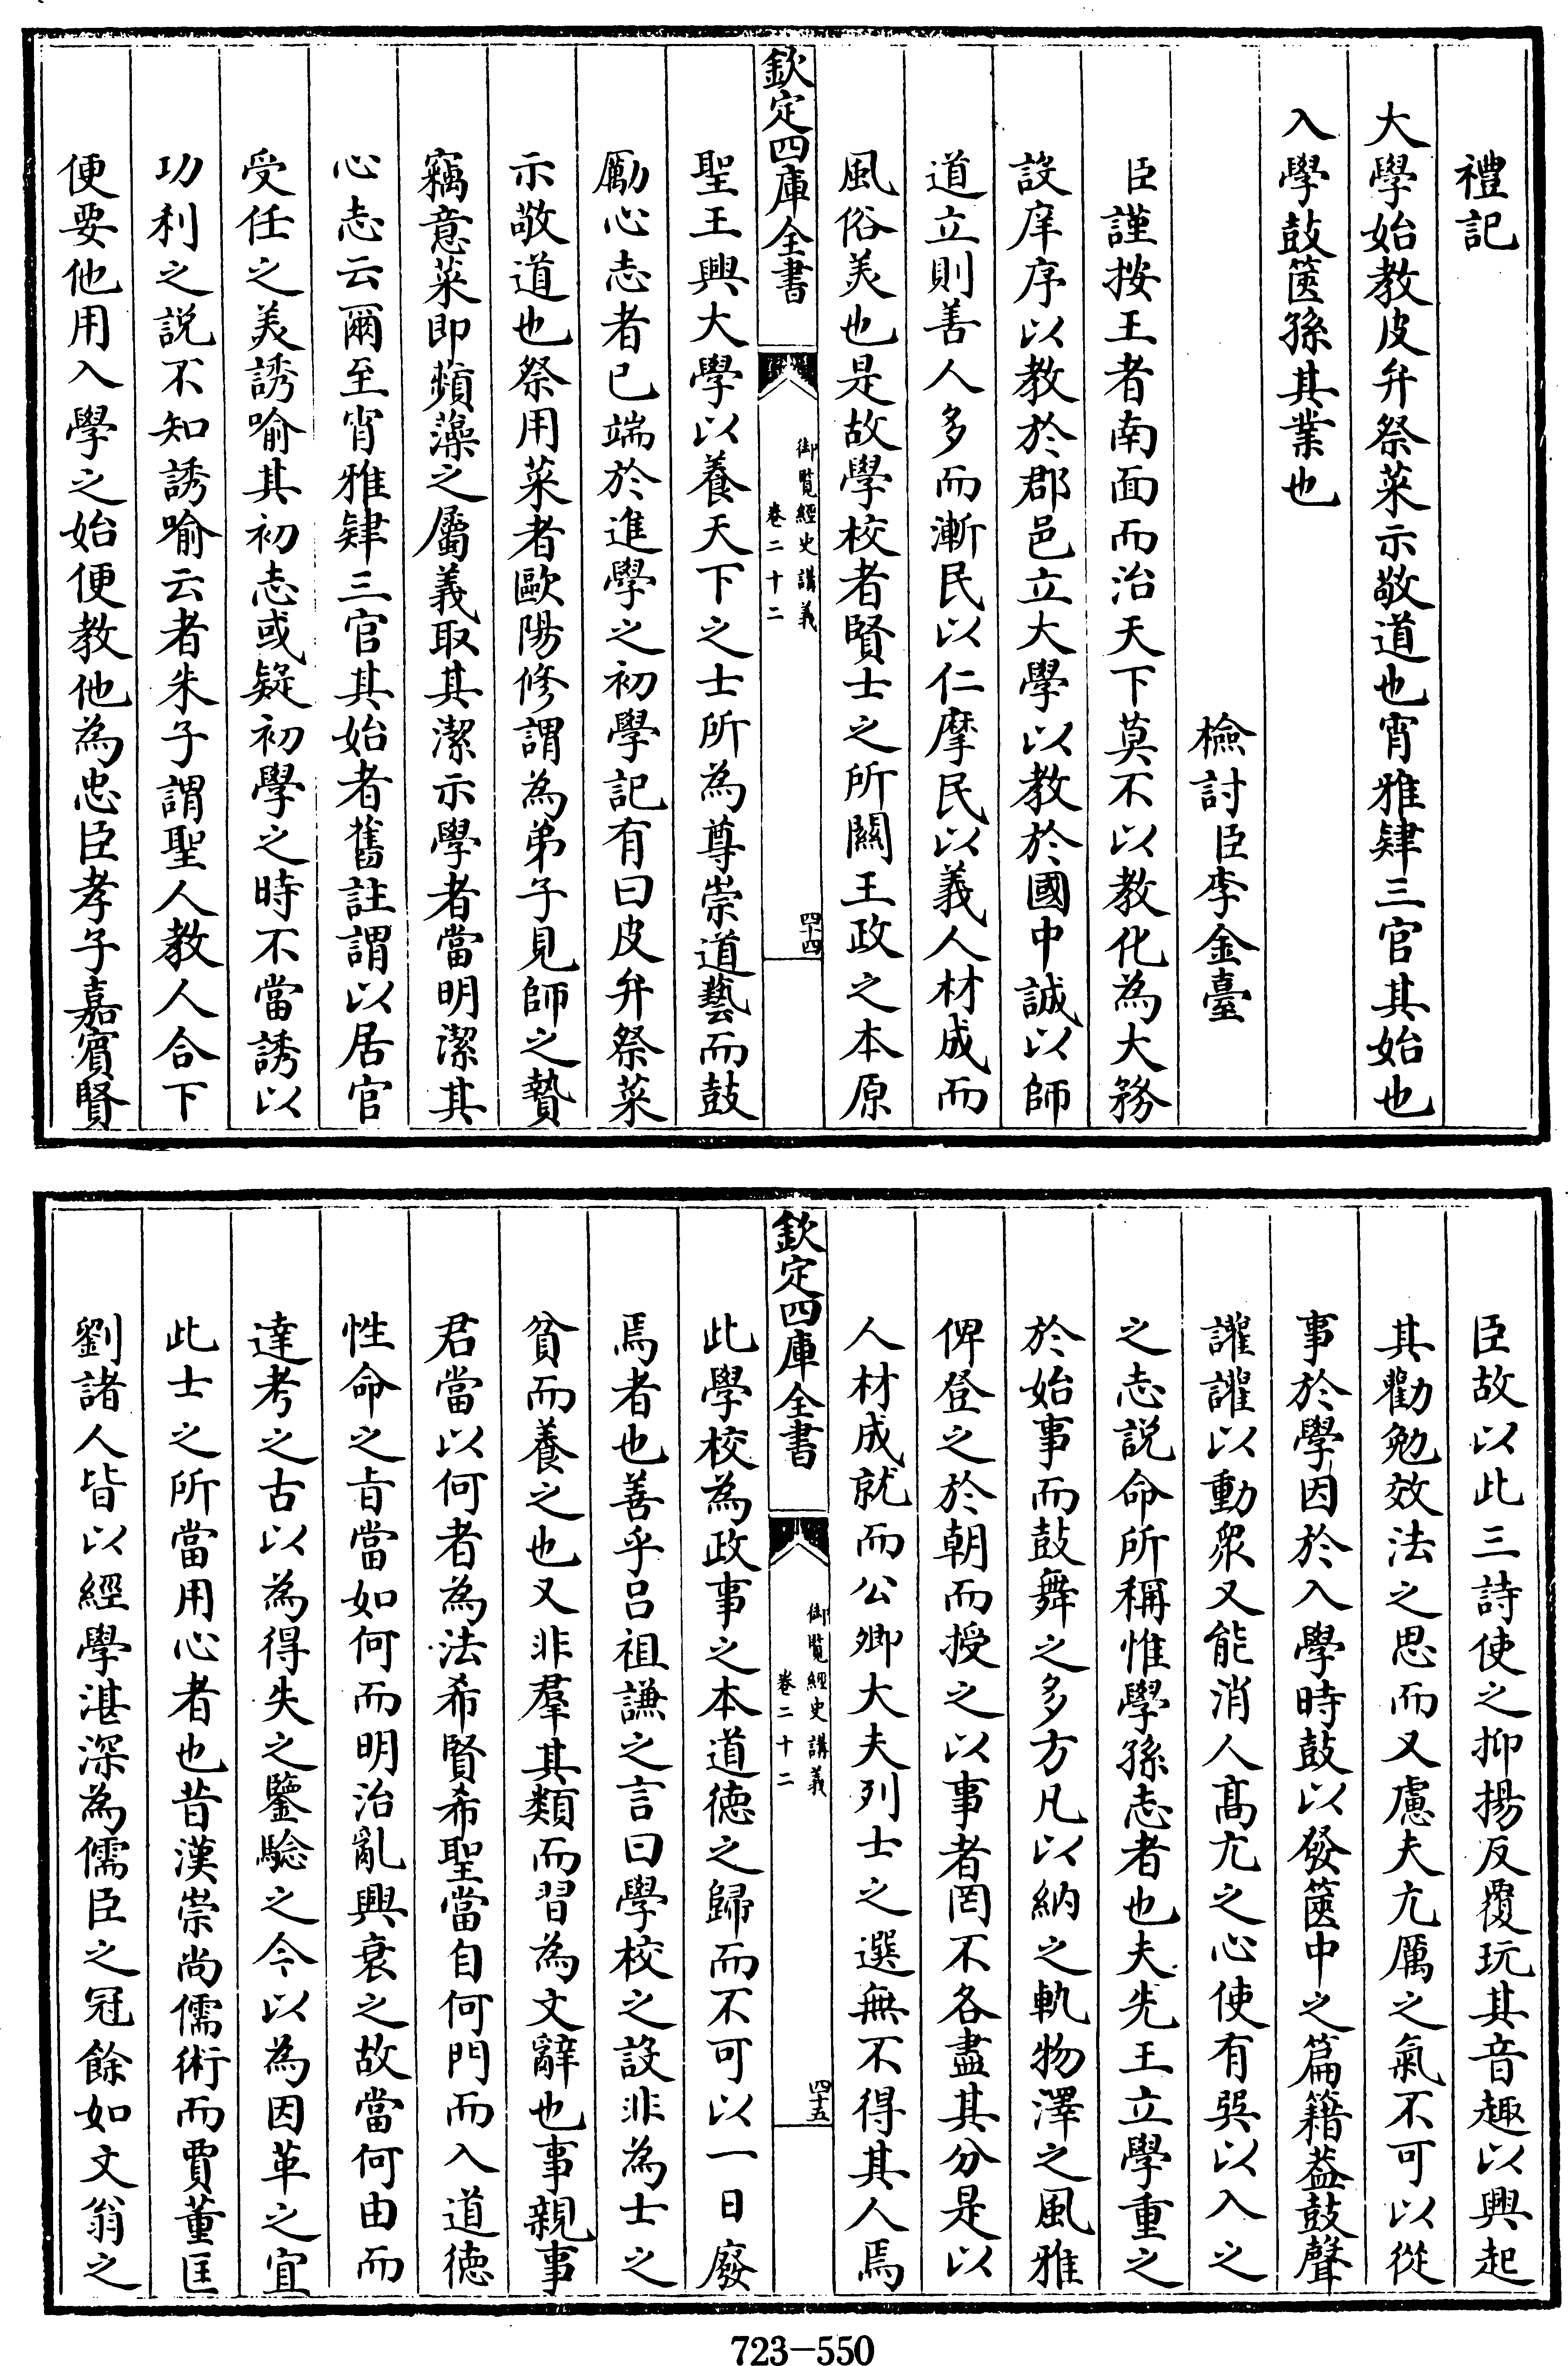 禮記
大學始教皮弁祭菜示敬道也宵雅肄三官其始也
入學鼓篋孫其業也
檢討臣李金臺
臣謹按王者南面而治天下莫不以教化為大務
設庠序以教於郡邑立大學以教於國中誠以師
道立則善人多而漸民以仁摩民以義人材成而
風俗美也是故學校者賢士之所關王政之本原
欽定四庫全書
御覽經史講義
卷二十二
四十四
聖王興大學以養天下之士所為尊崇道藝而鼓
勵心志者已端於進學之初學記有曰皮弁祭菜
示敬道也祭用菜者歐陽修謂為弟子見師之贄
竊意菜即蘋藻之屬義取其潔示學者當明潔其
心志云爾至宵雅肄三官其始者舊註謂以居官
受任之美誘喻其初志或疑初學之時不當誘以
功利之説不知誘喻云者朱子謂聖人教人合下
便要他用入學之始便教他為忠臣孝子嘉賓賢
臣故以此三詩使之抑揚反覆玩其音趣以興起
其勸勉效法之思而又慮夫亢厲之氣不可以從
事於學因於入學時鼓以發篋中之篇籍葢鼓聲
讙讙以動衆又能消人髙亢之心使有巽以入之
之志説命所稱惟學孫志者也夫先王立學重之
於始事而鼓舞之多方凡以納之軌物澤之風雅
俾登之於朝而授之以事者罔不各盡其分是以
人材成就而公卿大夫列士之選無不得其人焉
欽定四庫全書
御覽經史講義
卷二十二
四十五
此學校為政事之本道徳之歸而不可以一日廢
焉者也善乎呂祖謙之言曰學校之設非為士之
貧而養之也又非羣其類而習為文辭也事親事
君當以何者為法希賢希聖當自何門而入道徳
性命之㫖當如何而明治亂興衰之故當何由而
達考之古以為得失之鑒驗之今以為因革之宜
此士之所當用心者也昔漢崇尚儒術而賈董匡
劉諸人皆以經學湛深為儒臣之冠餘如文翁之
723-550